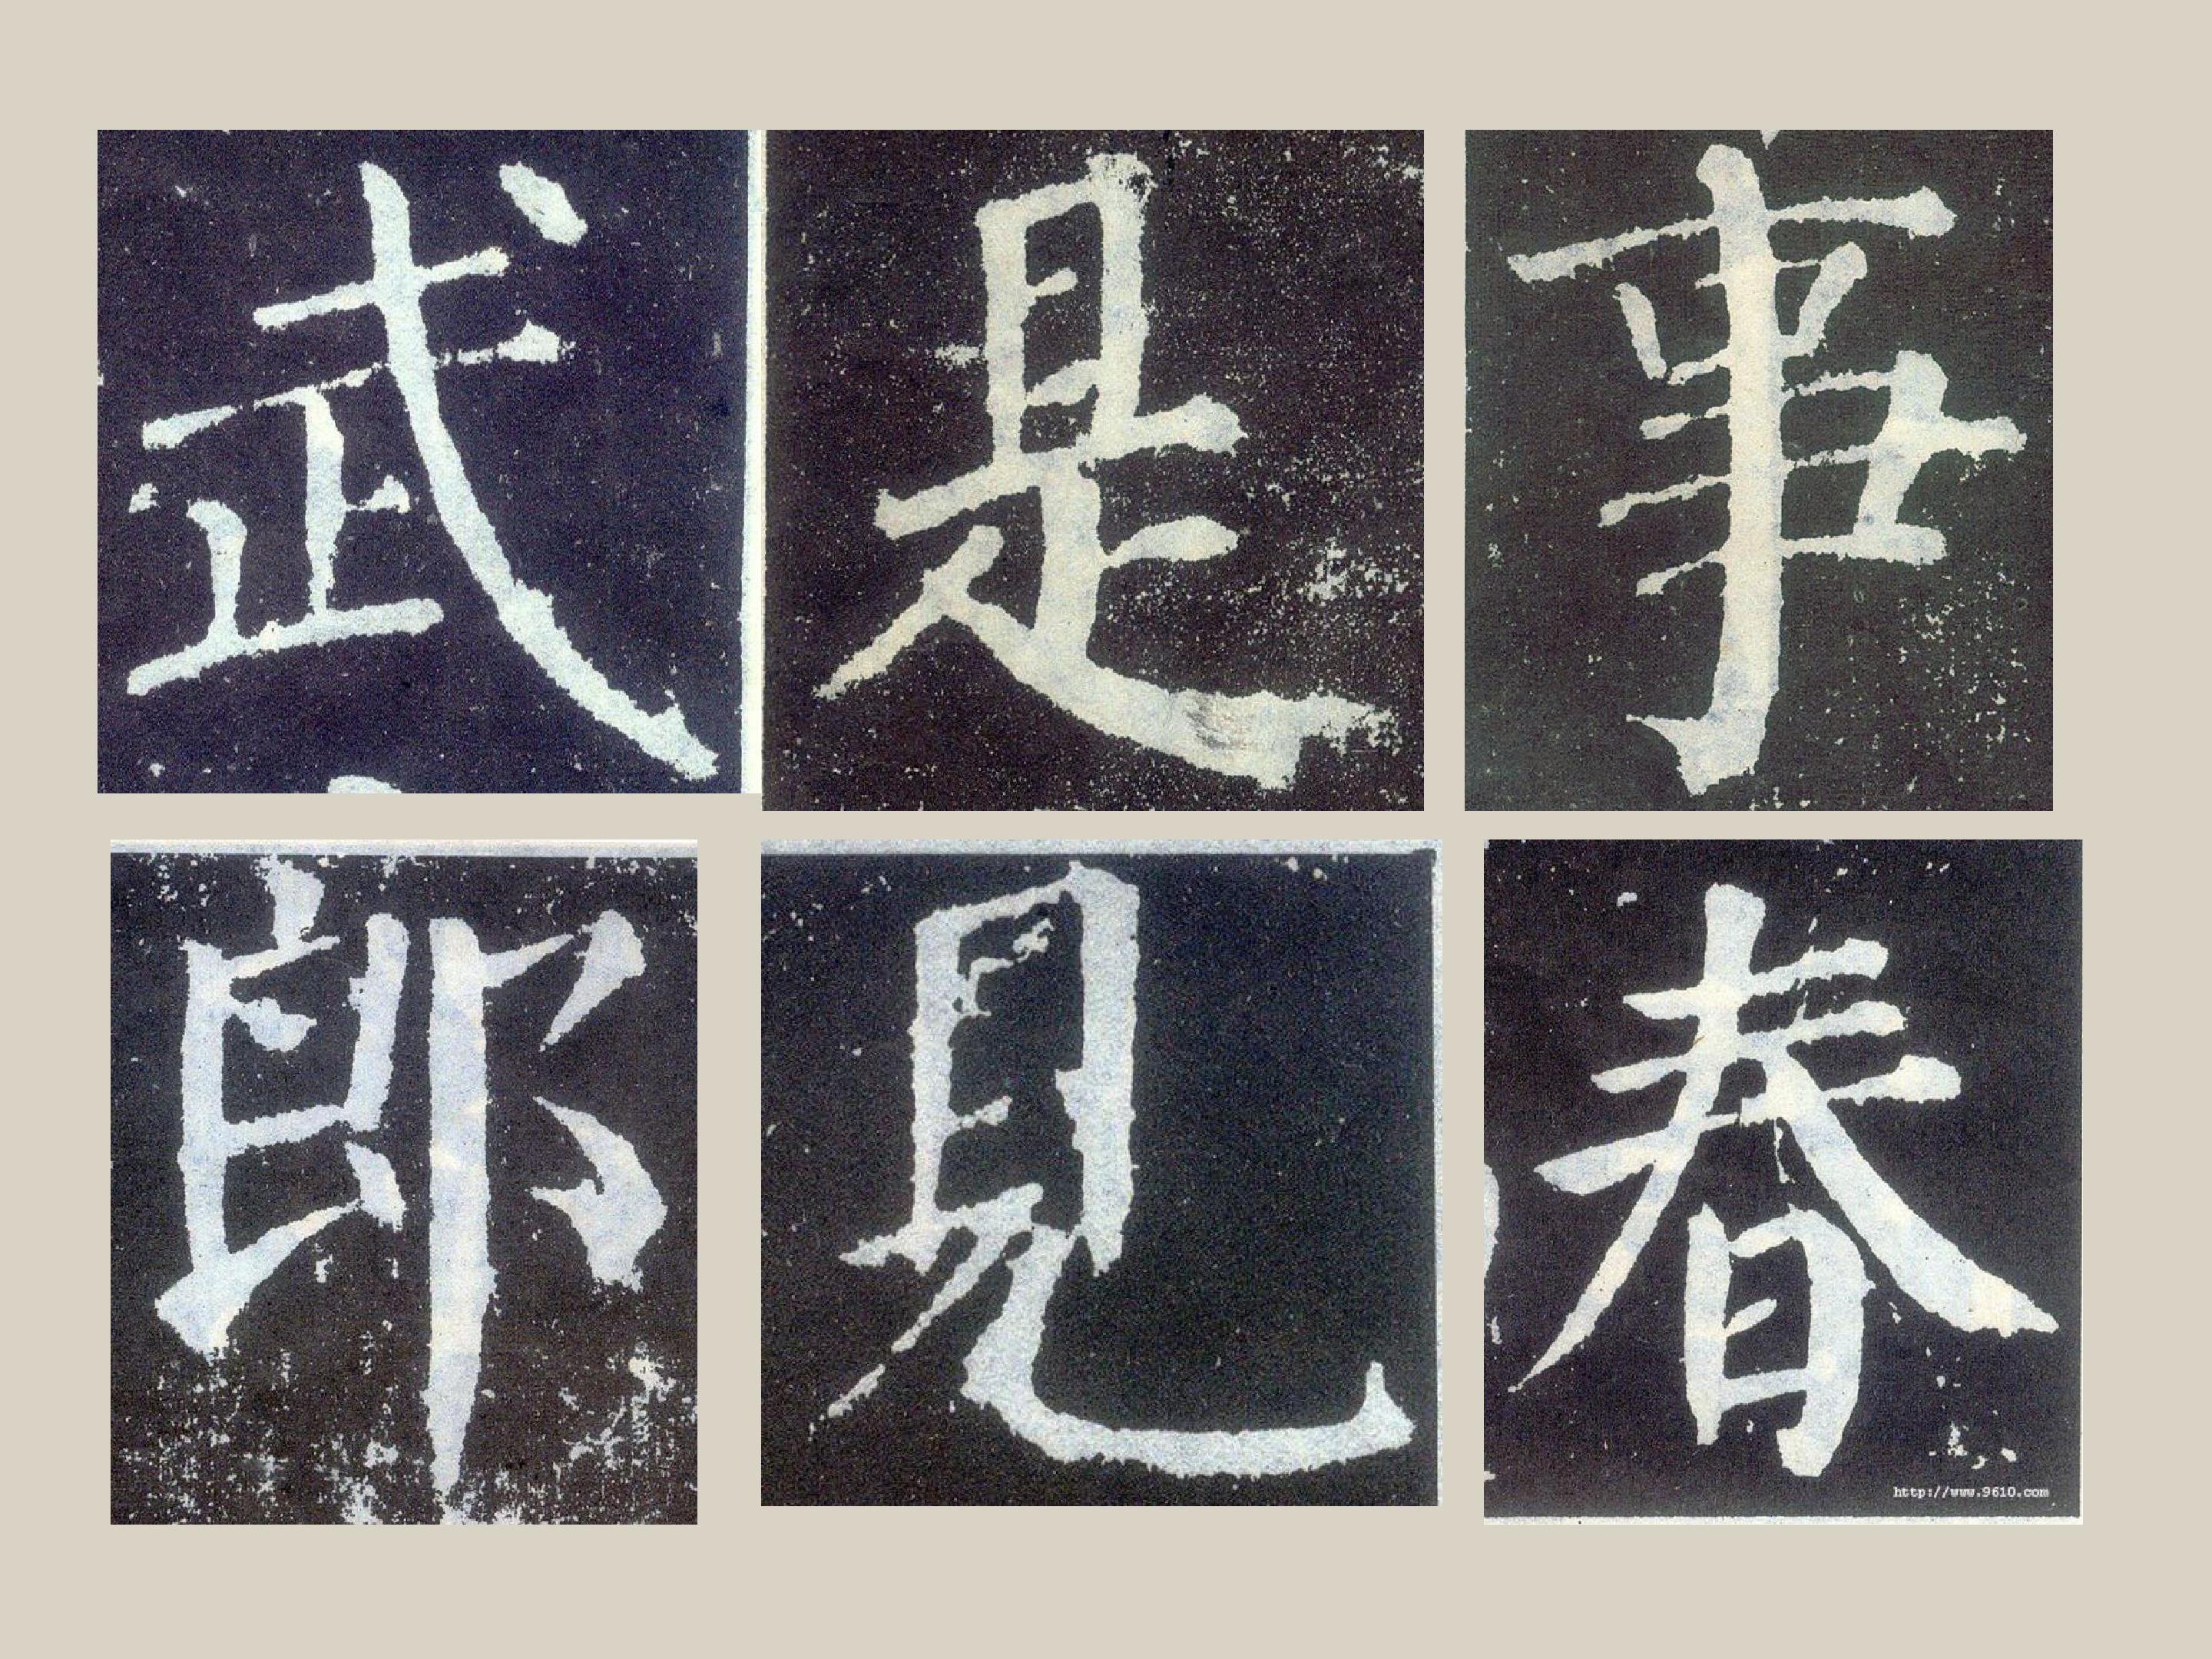 武是事
郎見春
http://www.9610.com